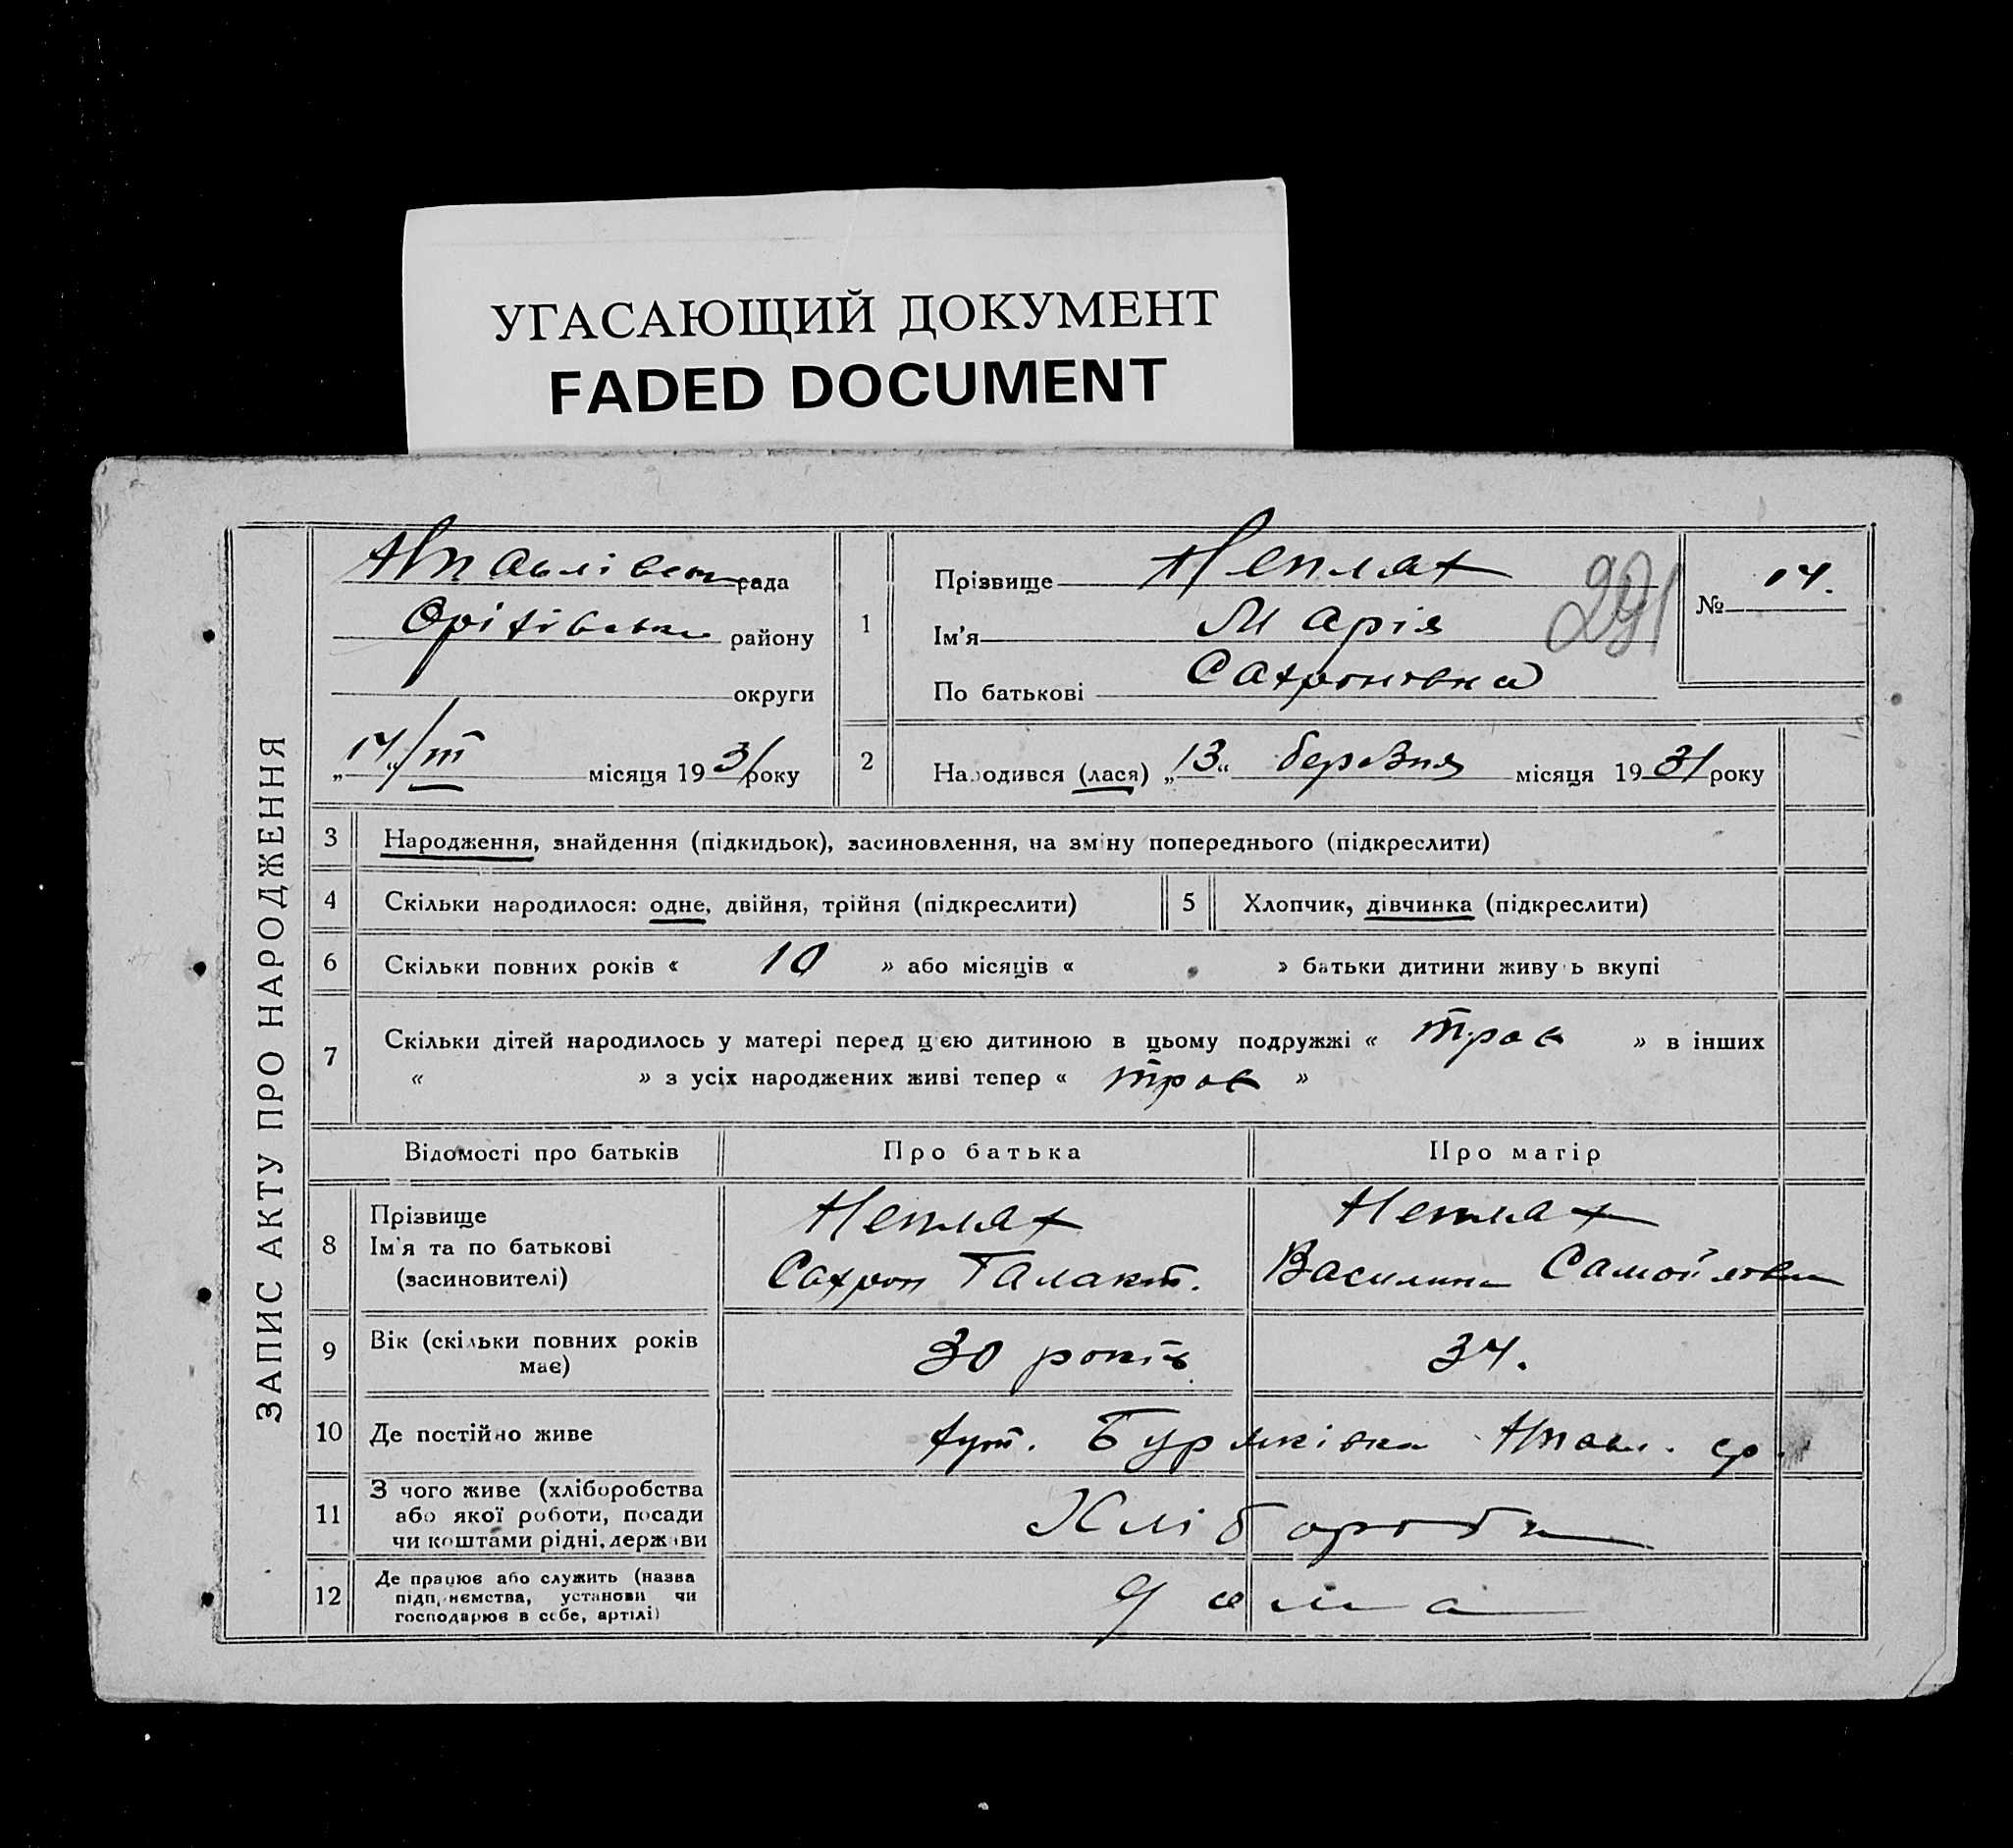 УГАСАЮЩИЙ ДОКУМЕНТ
FADED DOCUMENT
ЗАПИС АКТУ ПРО НАРОДЖЕННЯ
рада
Оріхівськ району
округи
„14“/III місяця 1931 року
1
Прізвище Неплях
Ім'я Марія
По батькові Сахроновна
291
№ 14.
2
Народився (лася) „13“ березня місяця 1931 року
3 Народження, знайдення (підкидьок), засиновлення, на зміну попереднього (підкреслити)
4 Скільки народилося: одне, двійня, трійня (підкреслити)
5 Хлопчик, дівчинка (підкреслити)
6 Скільки повних років « 10 » або місяців « » батьки дитини живуть вкупі
7 Скільки дітей народилось у матері перед цією дитиною в цьому подружжі « троє » в інших
« » з усіх народжених живі тепер « троє »
Відомості про батьків Про батька Про матір
8 Прізвище
Ім'я та по батькові
(засиновителі)
Неплях
Сахрон Галакт.
Неплях
Василина Самойловна
9 Вік (скільки повних років
має)
30 років
34.
10 Де постійно живе
хут. Бурмківка с/р.
11 З чого живе (хліборобства
або якої роботи, посади
чи коштами рідні, держави
Хлібороби
12 Де працює або служить (назва
підприємства, установи чи
господарює в себе, артілі)
дома